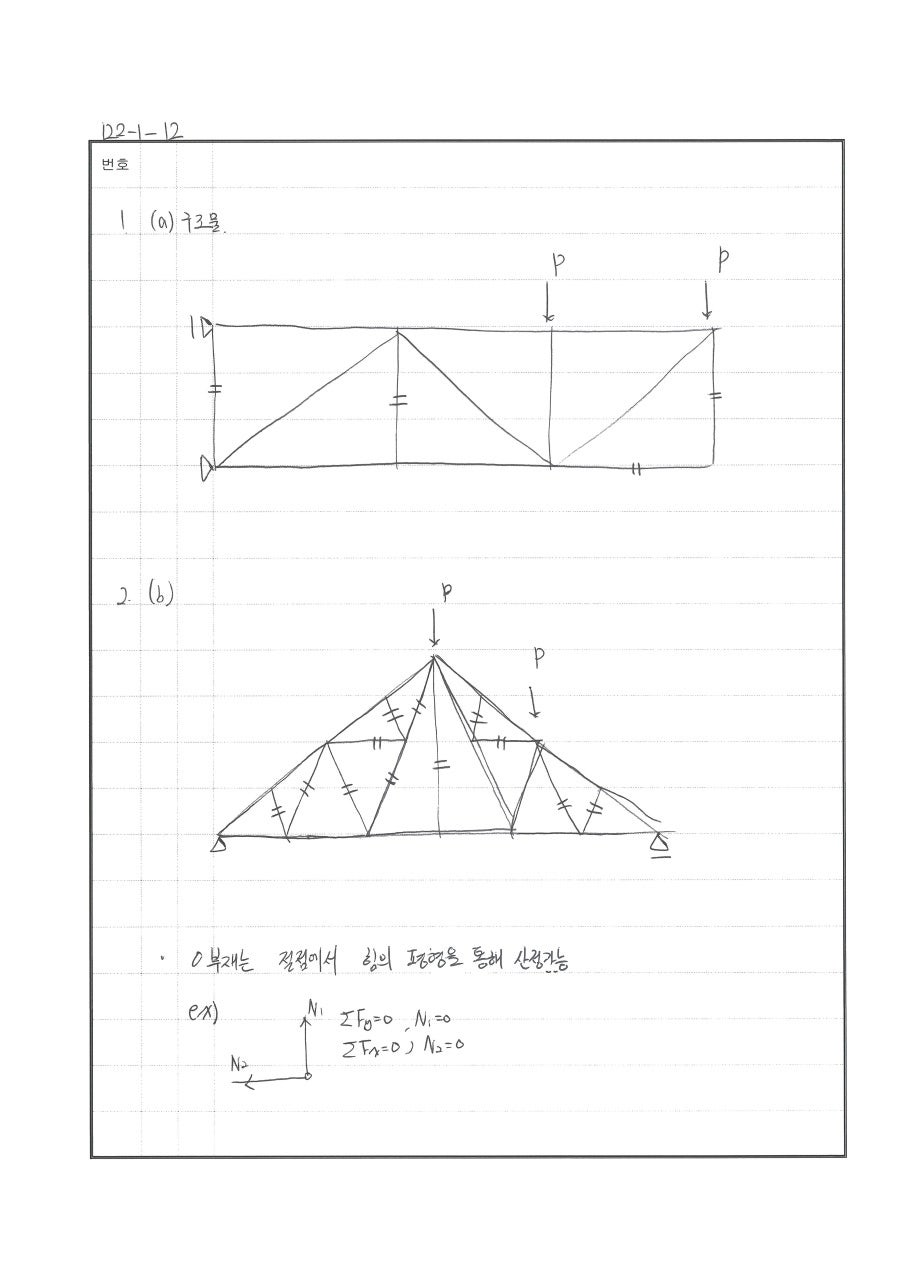 122-1-12
번호
1 (a) 구조물.
P P
2. (b)
P
P
· 0부재는 절점에서 힘의 평형을 통해 산정가능
ex) N₁ ΣFy=0, N₁=0
ΣFx=0, N₂=0
N₂